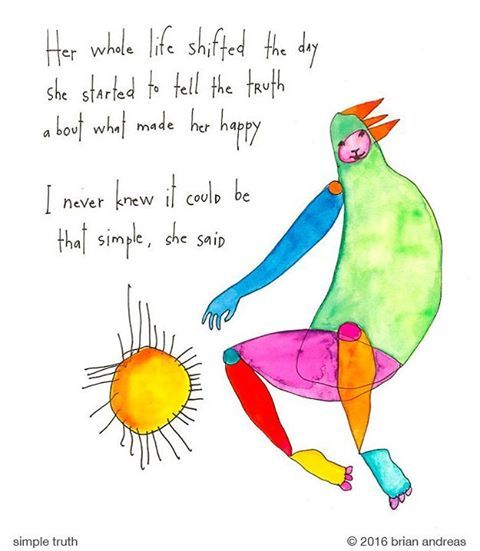 Her whole life shifted the day
she started to tell the truth
about what made her happy
I never knew it could be
that simple, she said
simple truth
© 2016 brian andreas